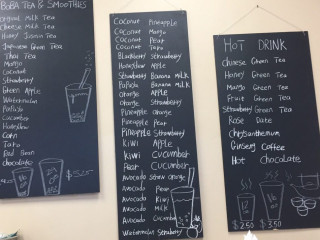 BOBA TEA & SMOOTHIES
Original Milk Tea
Cheese Milk Tea
Honey Jasmin Tea
Japanese Green Tea
Thai Tea
Mango
Coconut
Strawberry
Green Apple
Watermelon
Papaya
Cucumber
Honeydew
Corn
Taro
Red Bean
chocolate
$5.25
Coconut Pineapple
Coconut Mango
Coconut Papaya
Coconut Taro
Blackberry Strawberry
Honeydew Apple
Strawberry Banana Milk
Papaya Banana Milk
Orange Apple
Orange Strawberry
Pineapple Orange
Pineapple Pear
Pineapple Strawberry
Kiwi Apple
Kiwi Cucumber
Pear Cucumber
Avocado Pear
Avocado Kiwi
Avocado Milk
Avocado Cucumber
Watermelon Strawberry
HOT DRINK
Cheese Green Tea
Honey Green Tea
Mango Green Tea
Fruit Green Tea
Strawberry Green Tea
Rose Date
Chrysanthemum
Ginseng Coffee
Hot Chocolate
12 oz
16 oz
$2.50
$3.50